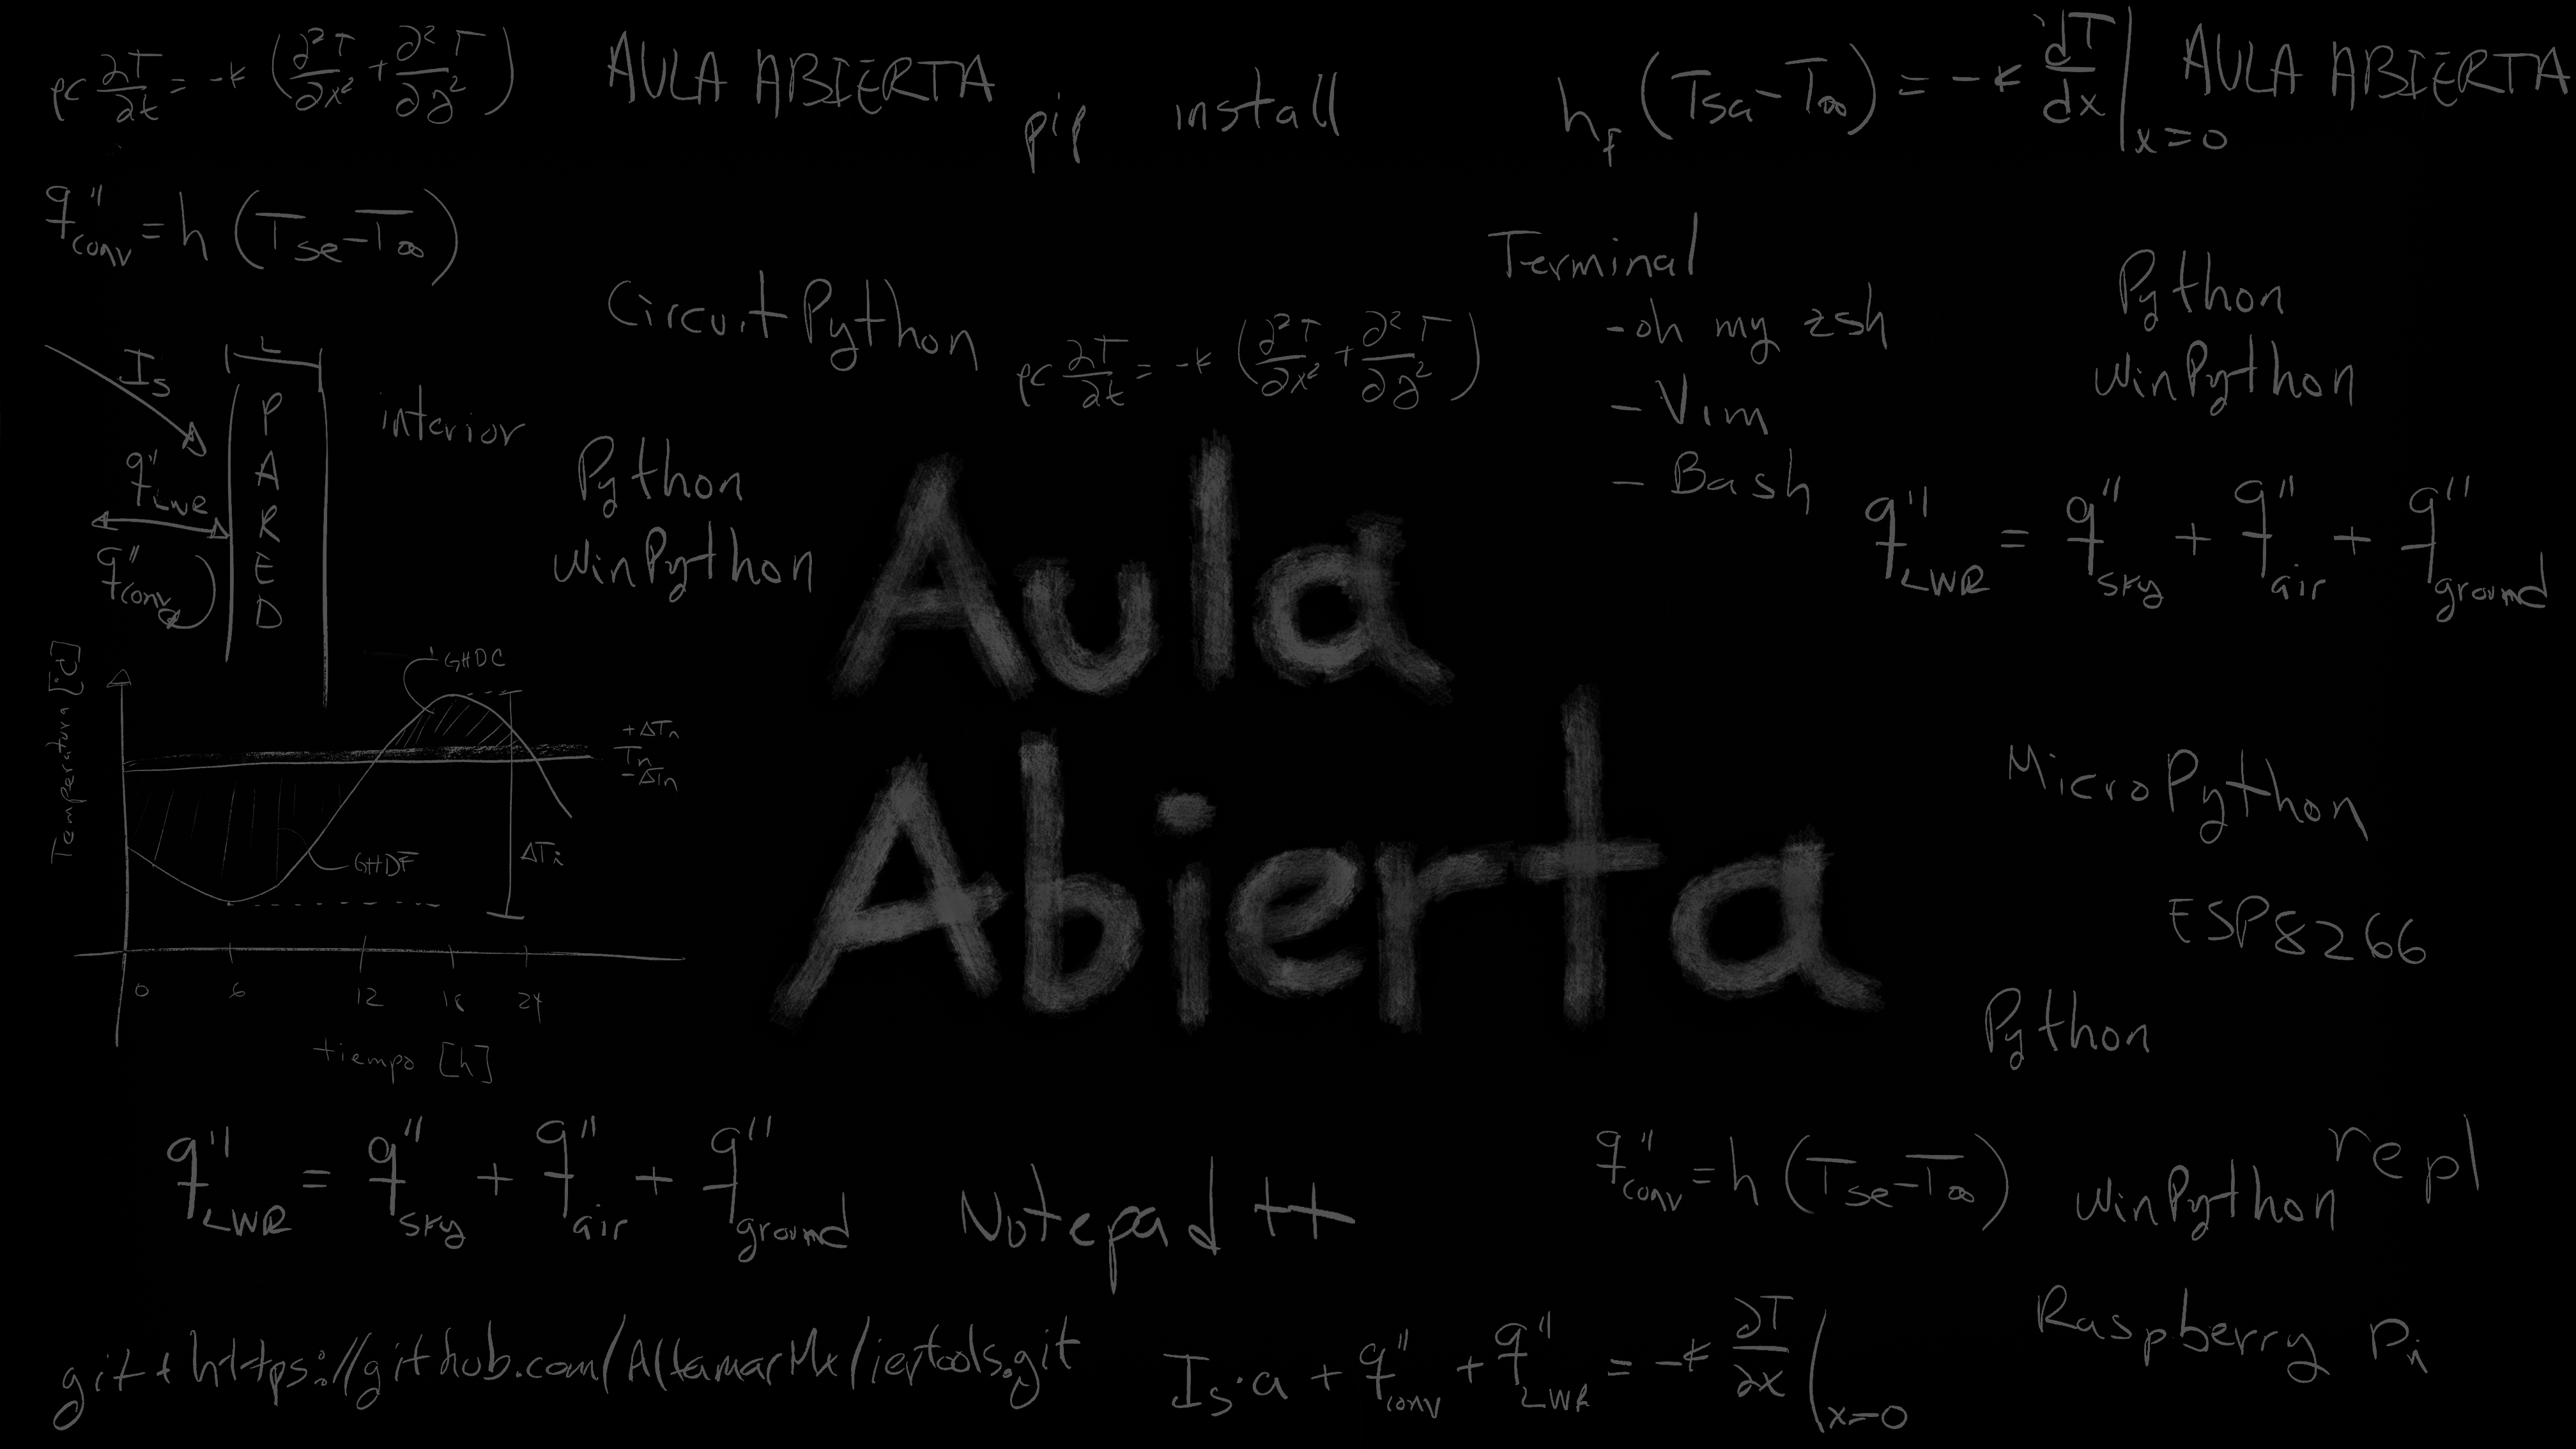 ρc ∂T/∂t = -k (∂²T/∂x² + ∂²T/∂y²)
AULA ABIERTA
pip install
h_f (Tsa - T∞) = -k dT/dx |x=0
AULA ABIERTA
q''conv = h (Tse - T∞)
CircuitPython
ρc ∂T/∂t = -k (∂²T/∂x² + ∂²T/∂y²)
Terminal
- oh my zsh
- Vim
- Bash
Python
WinPython
L
Is
PARED
interior
q''LWR
q''conv
Python
WinPython
q''LWR = q''sky + q''air + q''ground
Aula
Abierta
Temperatura [°C]
GHDC
+ΔTn
Tn
-ΔTn
GHDF
ΔTi
0 6 12 18 24
tiempo [h]
MicroPython
ESP8266
Python
q''LWR = q''sky + q''air + q''ground
Notepad ++
q''conv = h (Tse - T∞)
WinPython
repl
git+https://github.com/AltamarMx/iertools.git
Is·a + q''conv + q''LWR = -k ∂T/∂x |x=0
Raspberry Pi